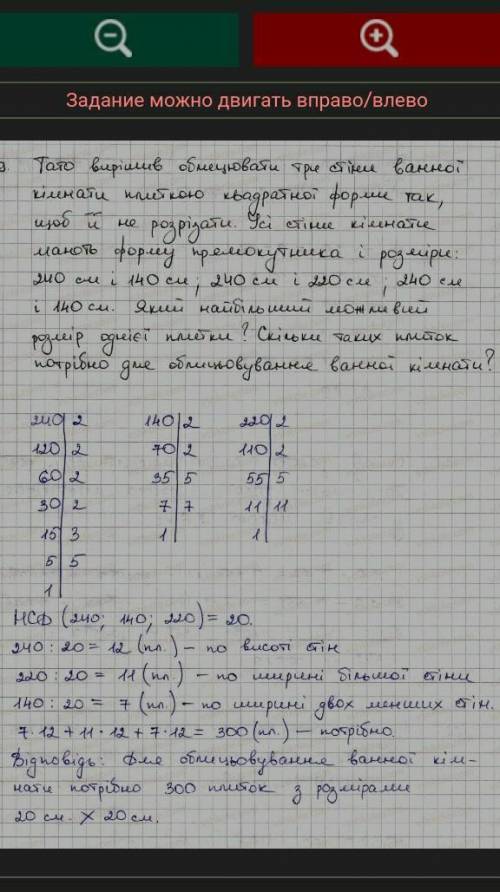 Задание можно двигать вправо/влево
9. Тато вирішив облицювати три стіни ванної
кімнати плиткою квадратної форми так,
щоб її не розрізати. Усі стіни кімнати
мають форму прямокутника і розміри:
240 см і 140 см; 240 см і 220 см; 240 см
і 140 см. Який найбільший можливий
розмір однієї плитки? Скільки таких плиток
потрібно для облицьовування ванної кімнати?
240 2 140 2 220 2
120 2 70 2 110 2
60 2 35 5 55 5
30 2 7 7 11 11
15 3 1 1
5 5
1
НСД (240; 140; 220) = 20.
240 : 20 = 12 (пл.) – по висоті стін
220 : 20 = 11 (пл.) – по ширині більшої стіни
140 : 20 = 7 (пл.) – по ширині двох менших стін.
7·12+11·12+7·12 = 300 (пл.) – потрібно.
Відповідь: Для облицьовування ванної кім-
нати потрібно 300 плиток з розмірами
20 см. × 20 см.